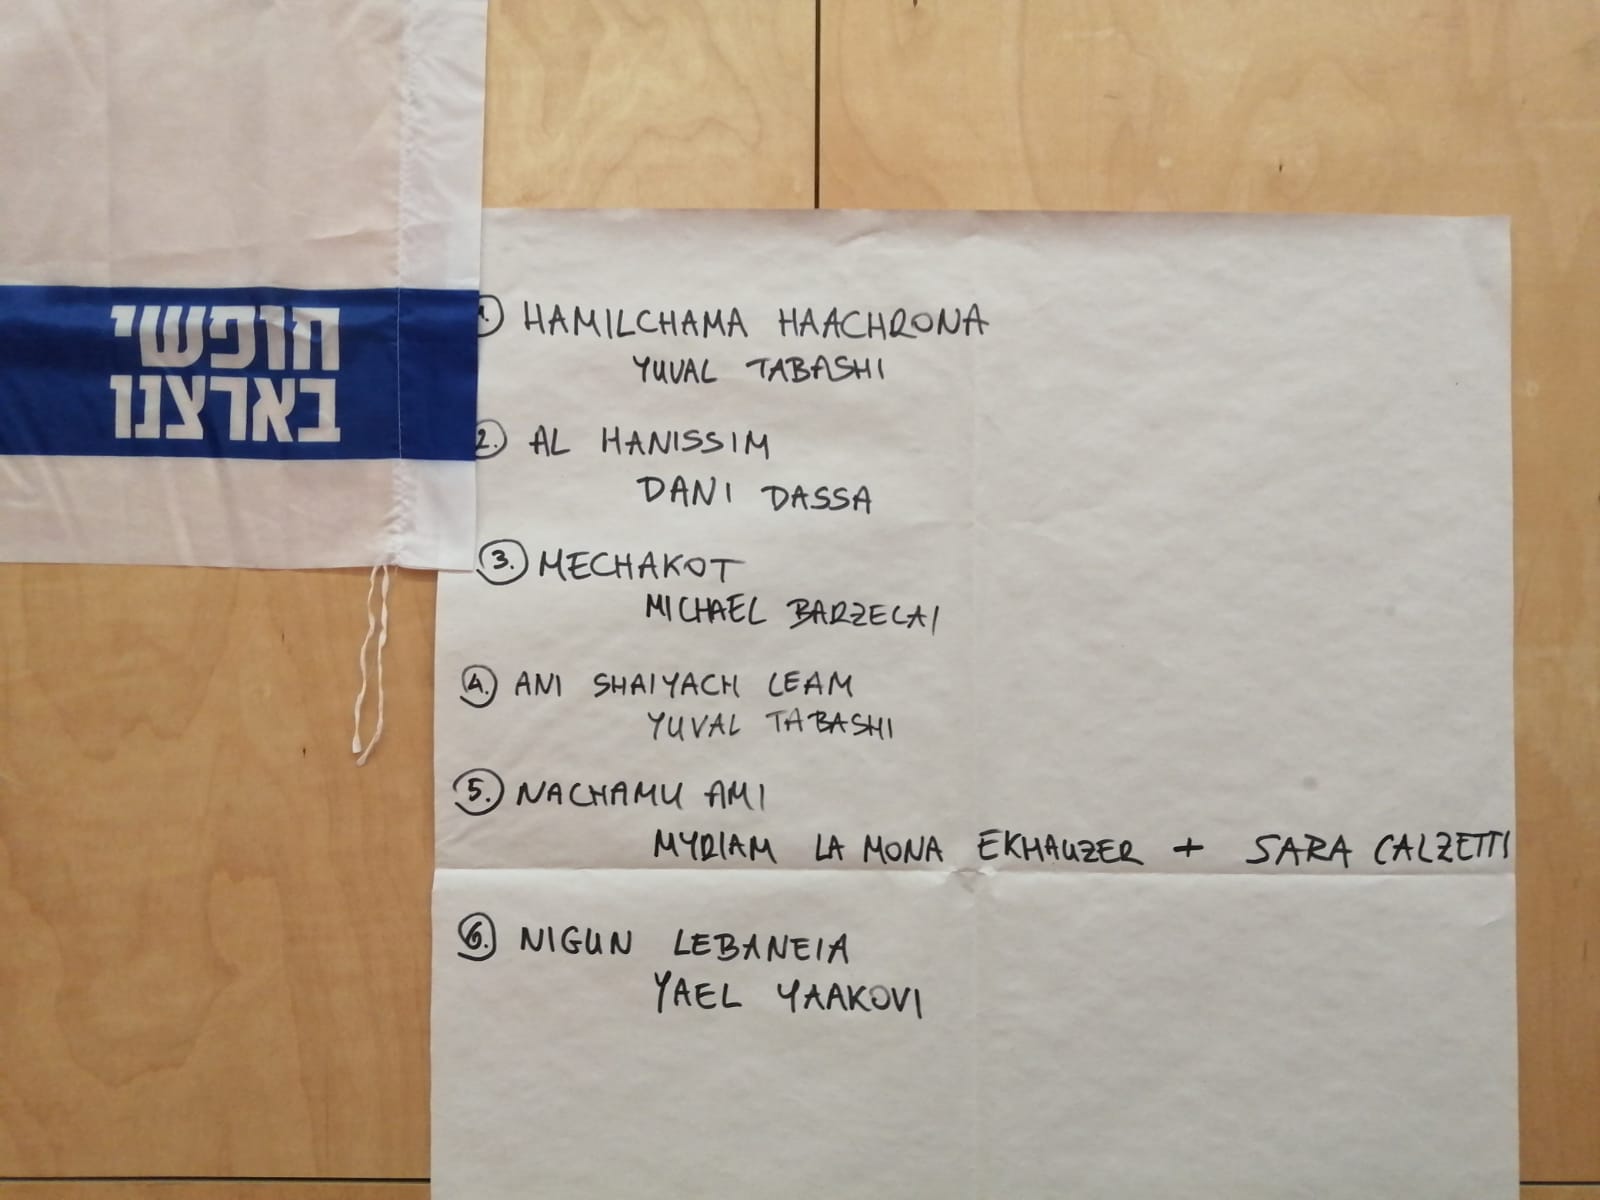 חופשי
בארצנו
1. HAMILCHAMA HAACHRONA
YUVAL TABASHI
2. AL HANISSIM
DANI DASSA
3. MECHAKOT
MICHAEL BARZELAI
4. ANI SHAIYACH LEAM
YUVAL TABASHI
5. NACHAMU AMI
MYRIAM LA MONA EKHAUZER + SARA CALZETTI
6. NIGUN LEBANEIA
YAEL YAAKOVI